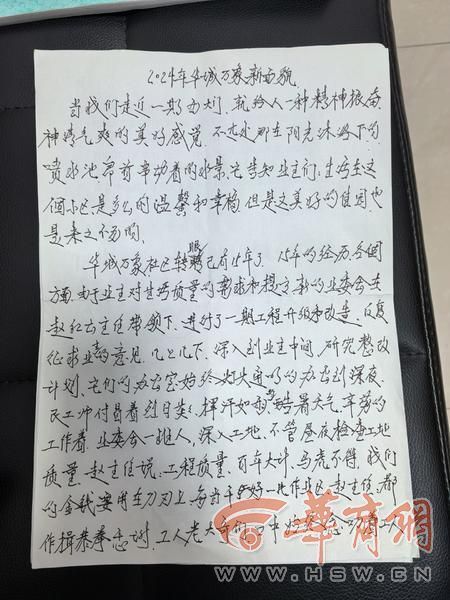 2024年华城万象新面貌
当我们走近一期大门，就给人一种精神振奋
神清气爽的美好感觉，不远处那在阳光沐浴下的
喷水池，告知业主们：生活在这
個小区是多么的温馨和幸福，但是这美好的佳园也
是来之不易的。
华城万象社区转眼已有15年了，15年的经历，各個
方面，由于业主对生活质量的需求和提高，新的业委会在
赵红云主任带领下，进行了一期工程升级和改造，反复
征求业主的意见，几上几下，深入到业主中间，研究整改
计划，它们的办公室始终灯火通明的办公到深夜，
民工师付冒着烈日炎炎，挥汗如雨，暑天气，辛劳的
工作着，业委会一班人，深入工地，不管昼夜检查工地
质量，赵主任说：工程质量，百年大计，马虎不得，我们
的金钱要用在刀刃上，每当干好一片作业区，赵主任，都
作揖恭拳志谢，工人老大哥们
华商网
WWW.HSW.CN